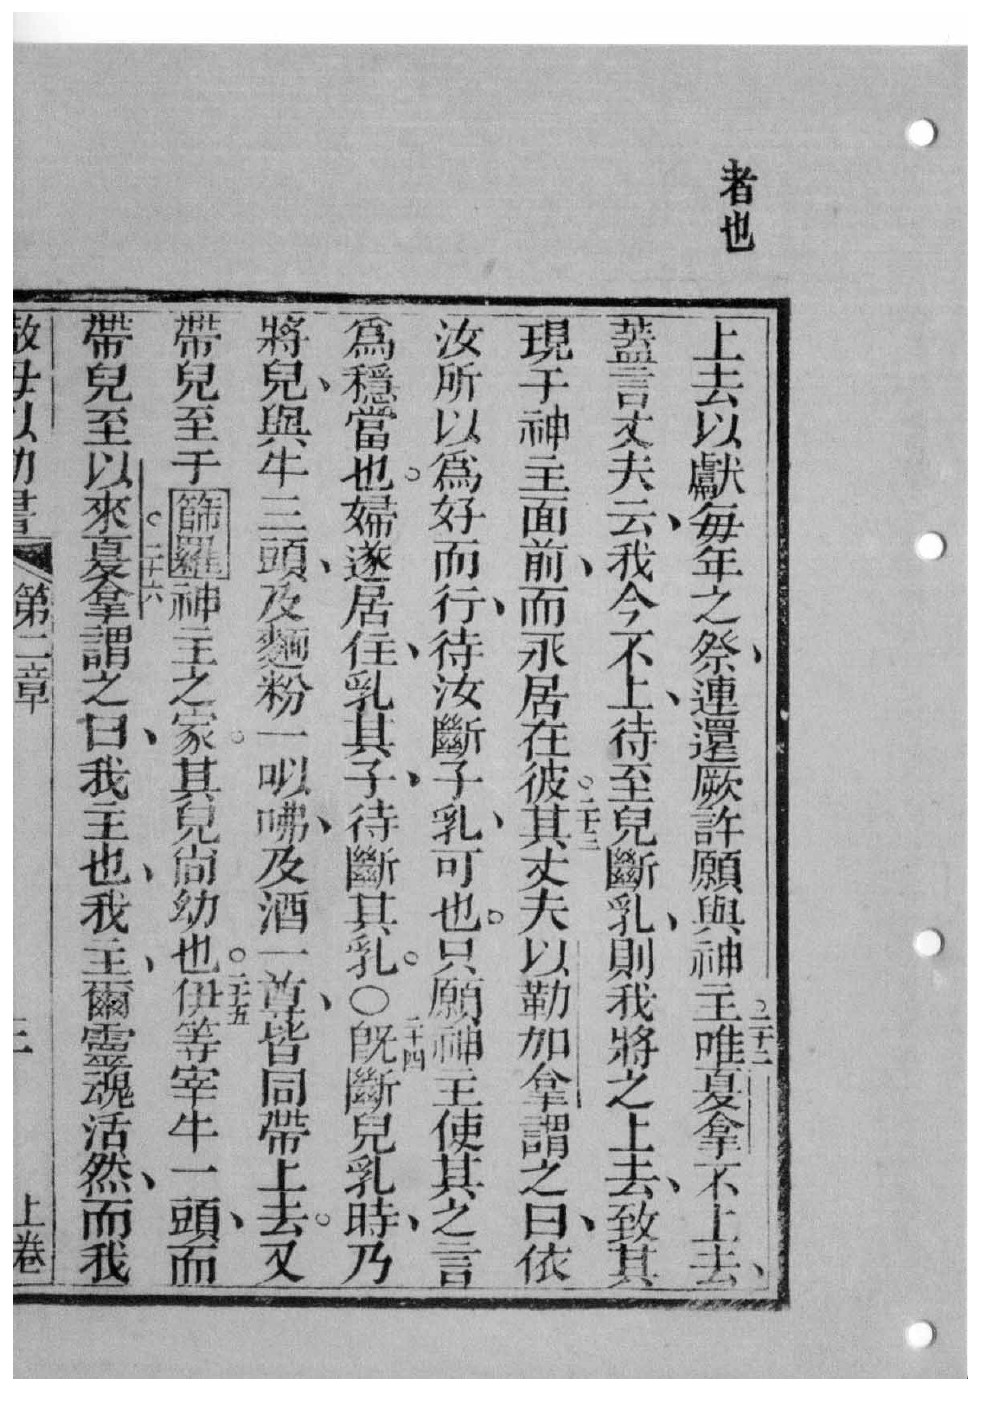 者也
上去以獻每年之祭、連還厥許願與神主。二十二唯夏拿不上去、
蓋言丈夫云、我今不上、待至兒斷乳、則我將之上去、致其
現于神主面前、而永居在彼。二十三其丈夫以勒加拿謂之曰、依
汝所以爲好而行、待汝斷子乳、可也。只願神主使其之言
爲穩當也。婦遂居住、乳其子、待斷其乳。〇二十四旣斷兒乳時、乃
將兒、與牛三頭、及麵粉一𠲖咈、及酒一尊、皆同帶上去。又
帶兒至于篩羅神主之家。其兒尙幼也。二十五伊等宰牛一頭、而
帶兒至以來。二十六夏拿謂之曰、我主也、我主、爾靈魂活然、而我
撒母以勿書 第一章 三 上卷